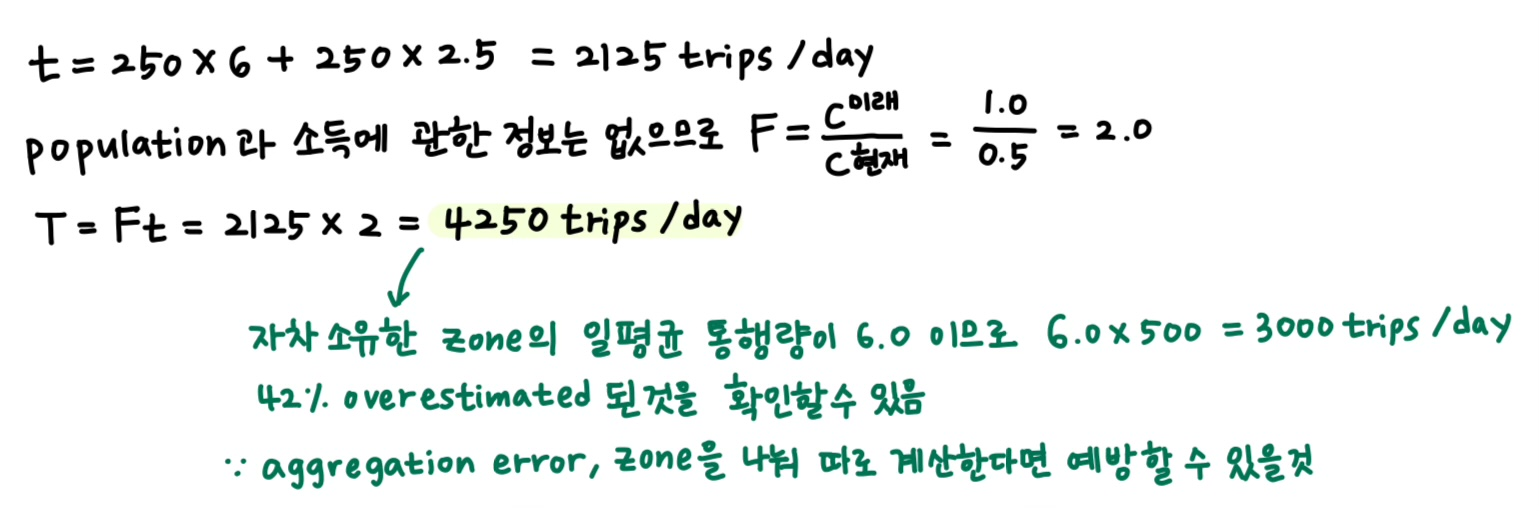 t = 250 × 6 + 250 × 2.5 = 2125 trips /day
population과 소득에 관한 정보는 없으므로 F = C미래 / C현재 = 1.0 / 0.5 = 2.0
T = Ft = 2125 × 2 = 4250 trips /day
자차 소유한 zone의 일평균 통행량이 6.0 이므로 6.0 × 500 = 3000 trips /day
42% overestimated 된것을 확인할수 있음
∵ aggregation error, zone을 나눠 따로 계산한다면 예방할 수 있을것